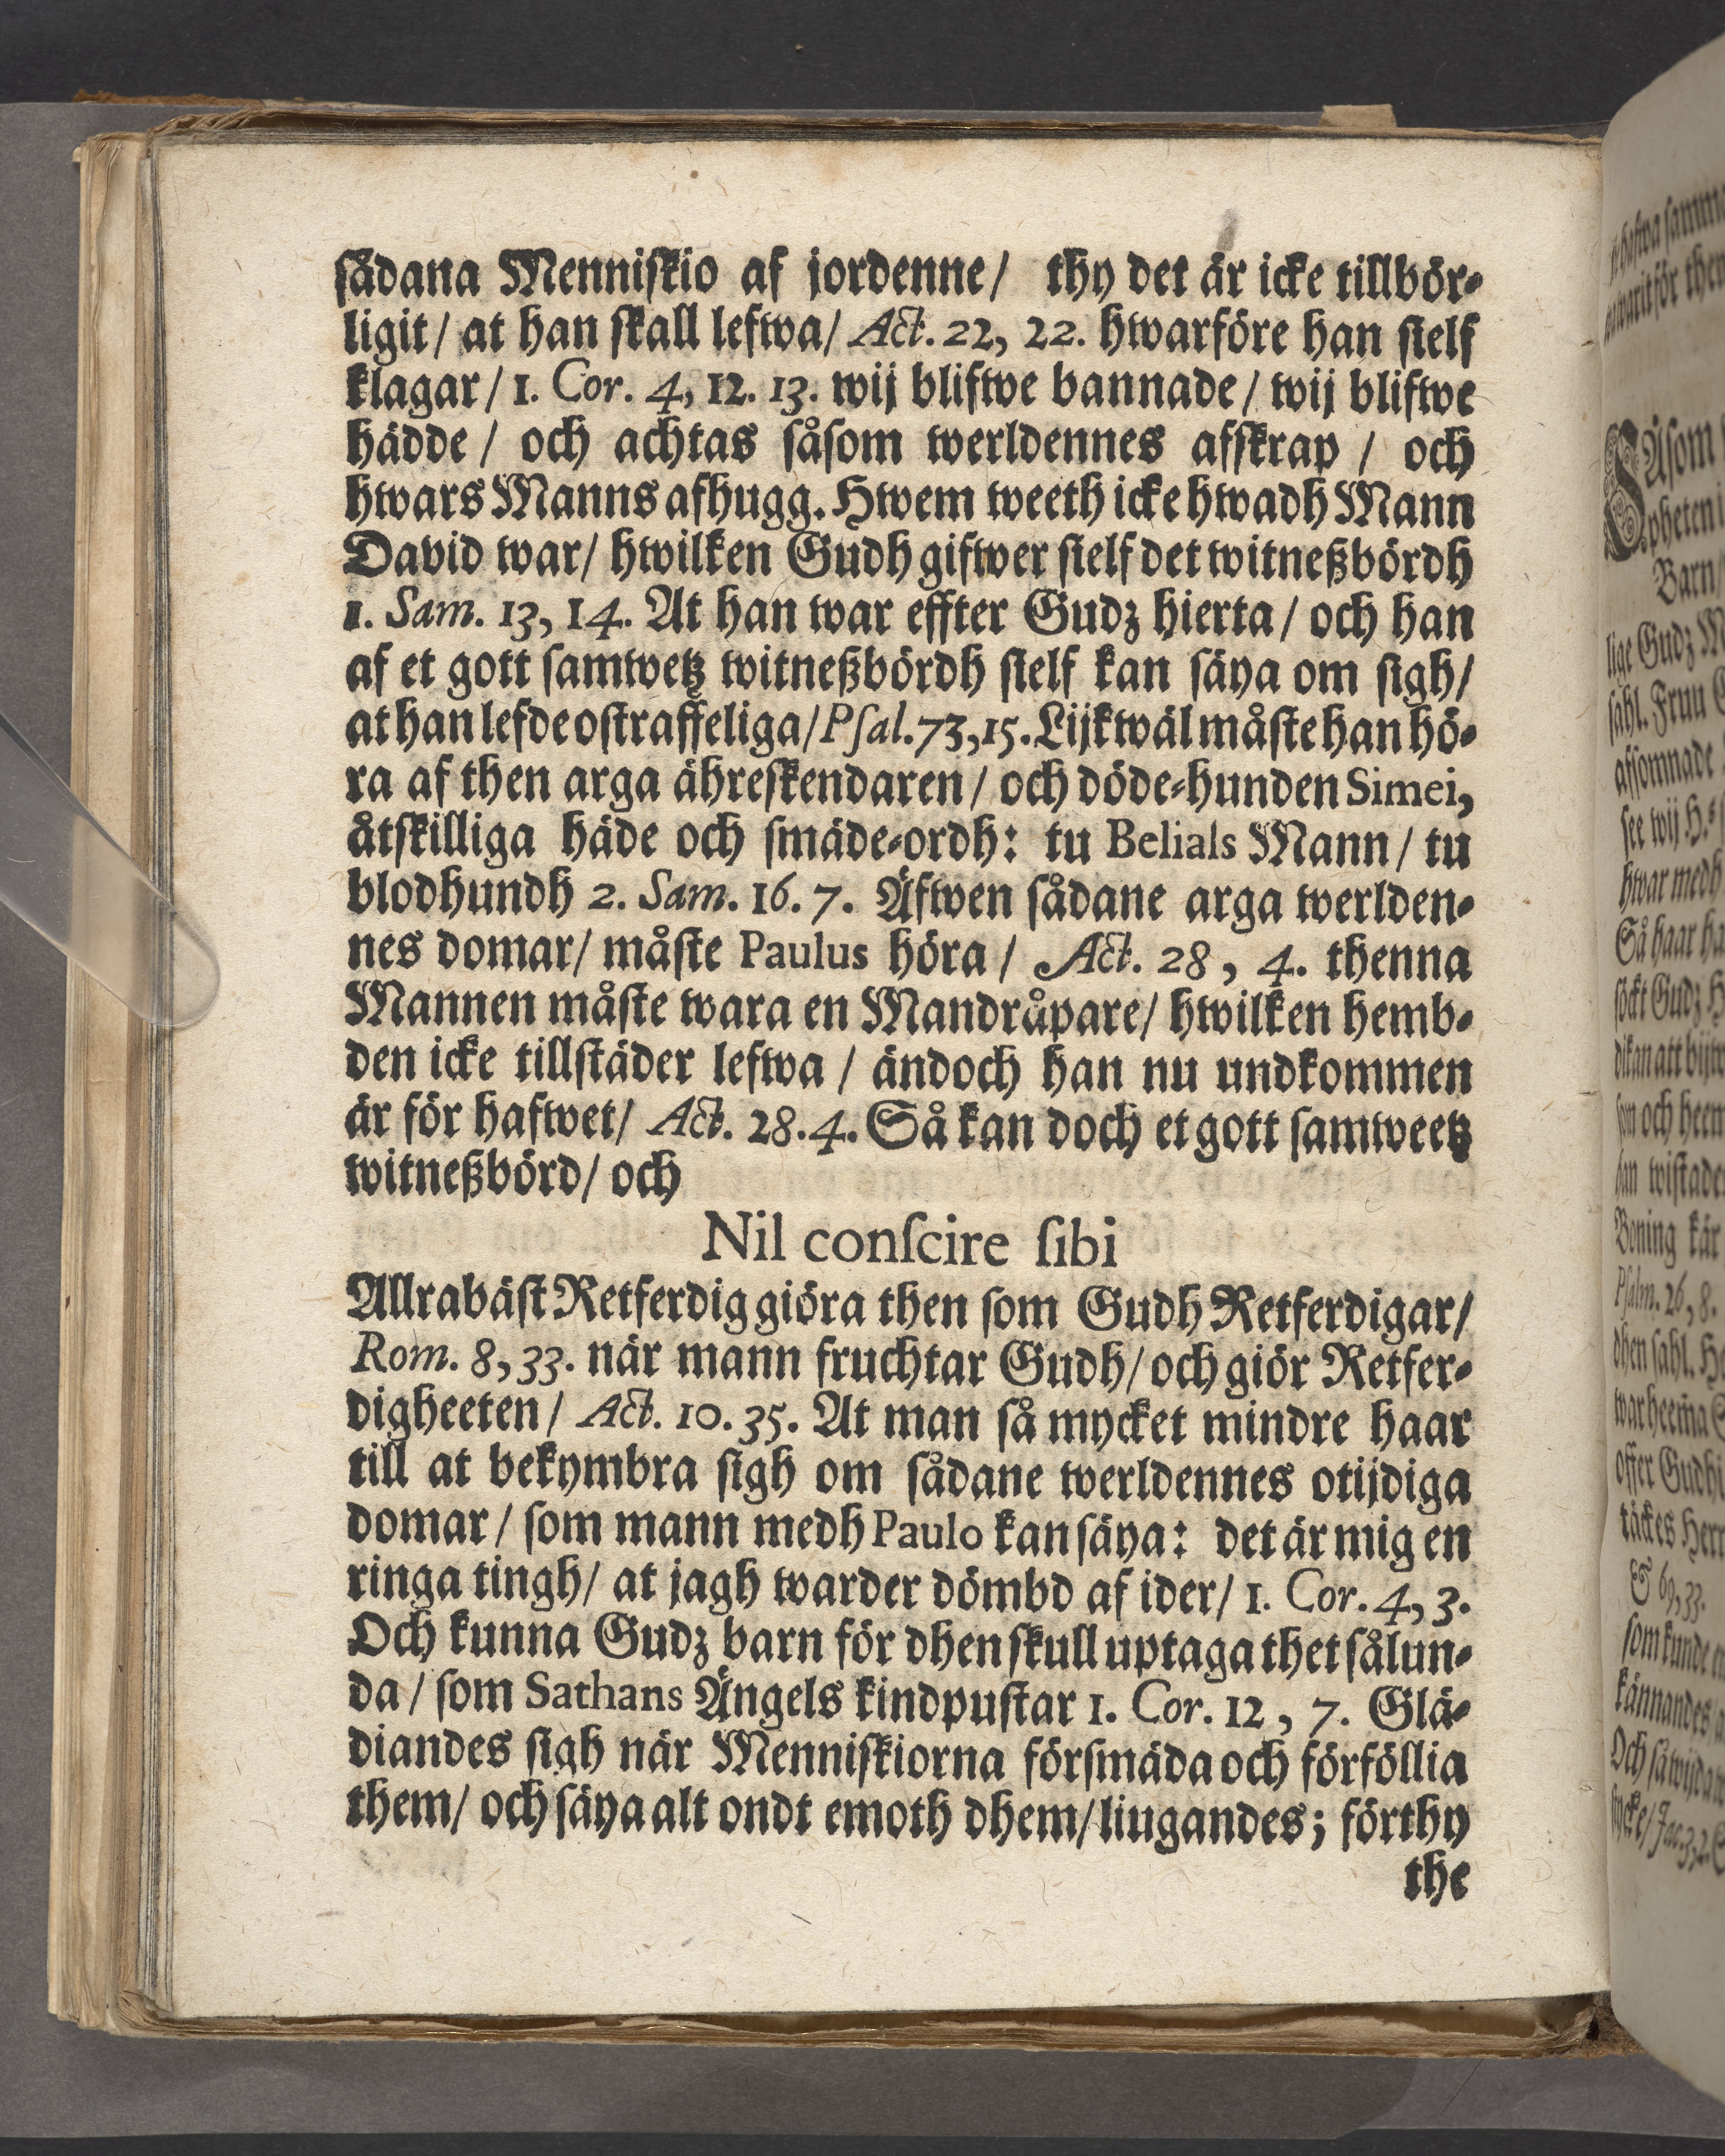 sådana Menniskio af jordenne/ thy det är icke tillbör-
ligit/ at han skall lefwa/ Act. 22, 22. hwarföre han sielf
klagar/ 1. Cor. 4, 12. 13. wij blifwe bannade/ wij blifwe
hädde/ och achtas såsom werldennes afskrap/ och
hwars Manns afhugg. Hwem weeth icke hwadh Mann
David war/ hwilken Gudh gifwer sielf det witneßbördh
1. Sam. 13, 14. At han war effter Gudz hierta/ och han
af et gott samwetz witneßbördh sielf kan säya om sigh/
at han lefde ostraffeliga/ Psal. 73, 15. Lijkwäl måste han hö-
ra af then arga ähreskendaren/ och döde-hunden Simei,
åtskilliga häde och smäde-ordh: tu Belials Mann/ tu
blodhundh 2. Sam. 16. 7. Äfwen sådane arga werlden-
nes domar/ måste Paulus höra/ Act. 28, 4. thenna
Mannen måste wara en Mandråpare/ hwilken hemb-
den icke tillstäder lefwa/ ändoch han nu undkommen
är för hafwet/ Act. 28. 4. Så kan doch et gott samweetz
witneßbörd/ och
Nil conscire sibi
Allrabäst Retferdig giöra then som Gudh Retferdigar/
Rom. 8, 33. när mann fruchtar Gudh/ och giör Retfer-
digheeten/ Act. 10. 35. At man så mycket mindre haar
till at bekymbra sigh om sådane werldennes otijdiga
domar/ som mann medh Paulo kan säya: det är mig en
ringa tingh/ at jagh warder dömbd af ider/ 1. Cor. 4, 3.
Och kunna Gudz barn för dhen skull uptaga thet sålun-
da/ som Sathans Ängels kindpustar 1. Cor. 12, 7. Glä-
diandes sigh när Menniskiorna försmäda och förföllia
them/ och säya alt ondt emoth dhem/ liugandes; förthy
the